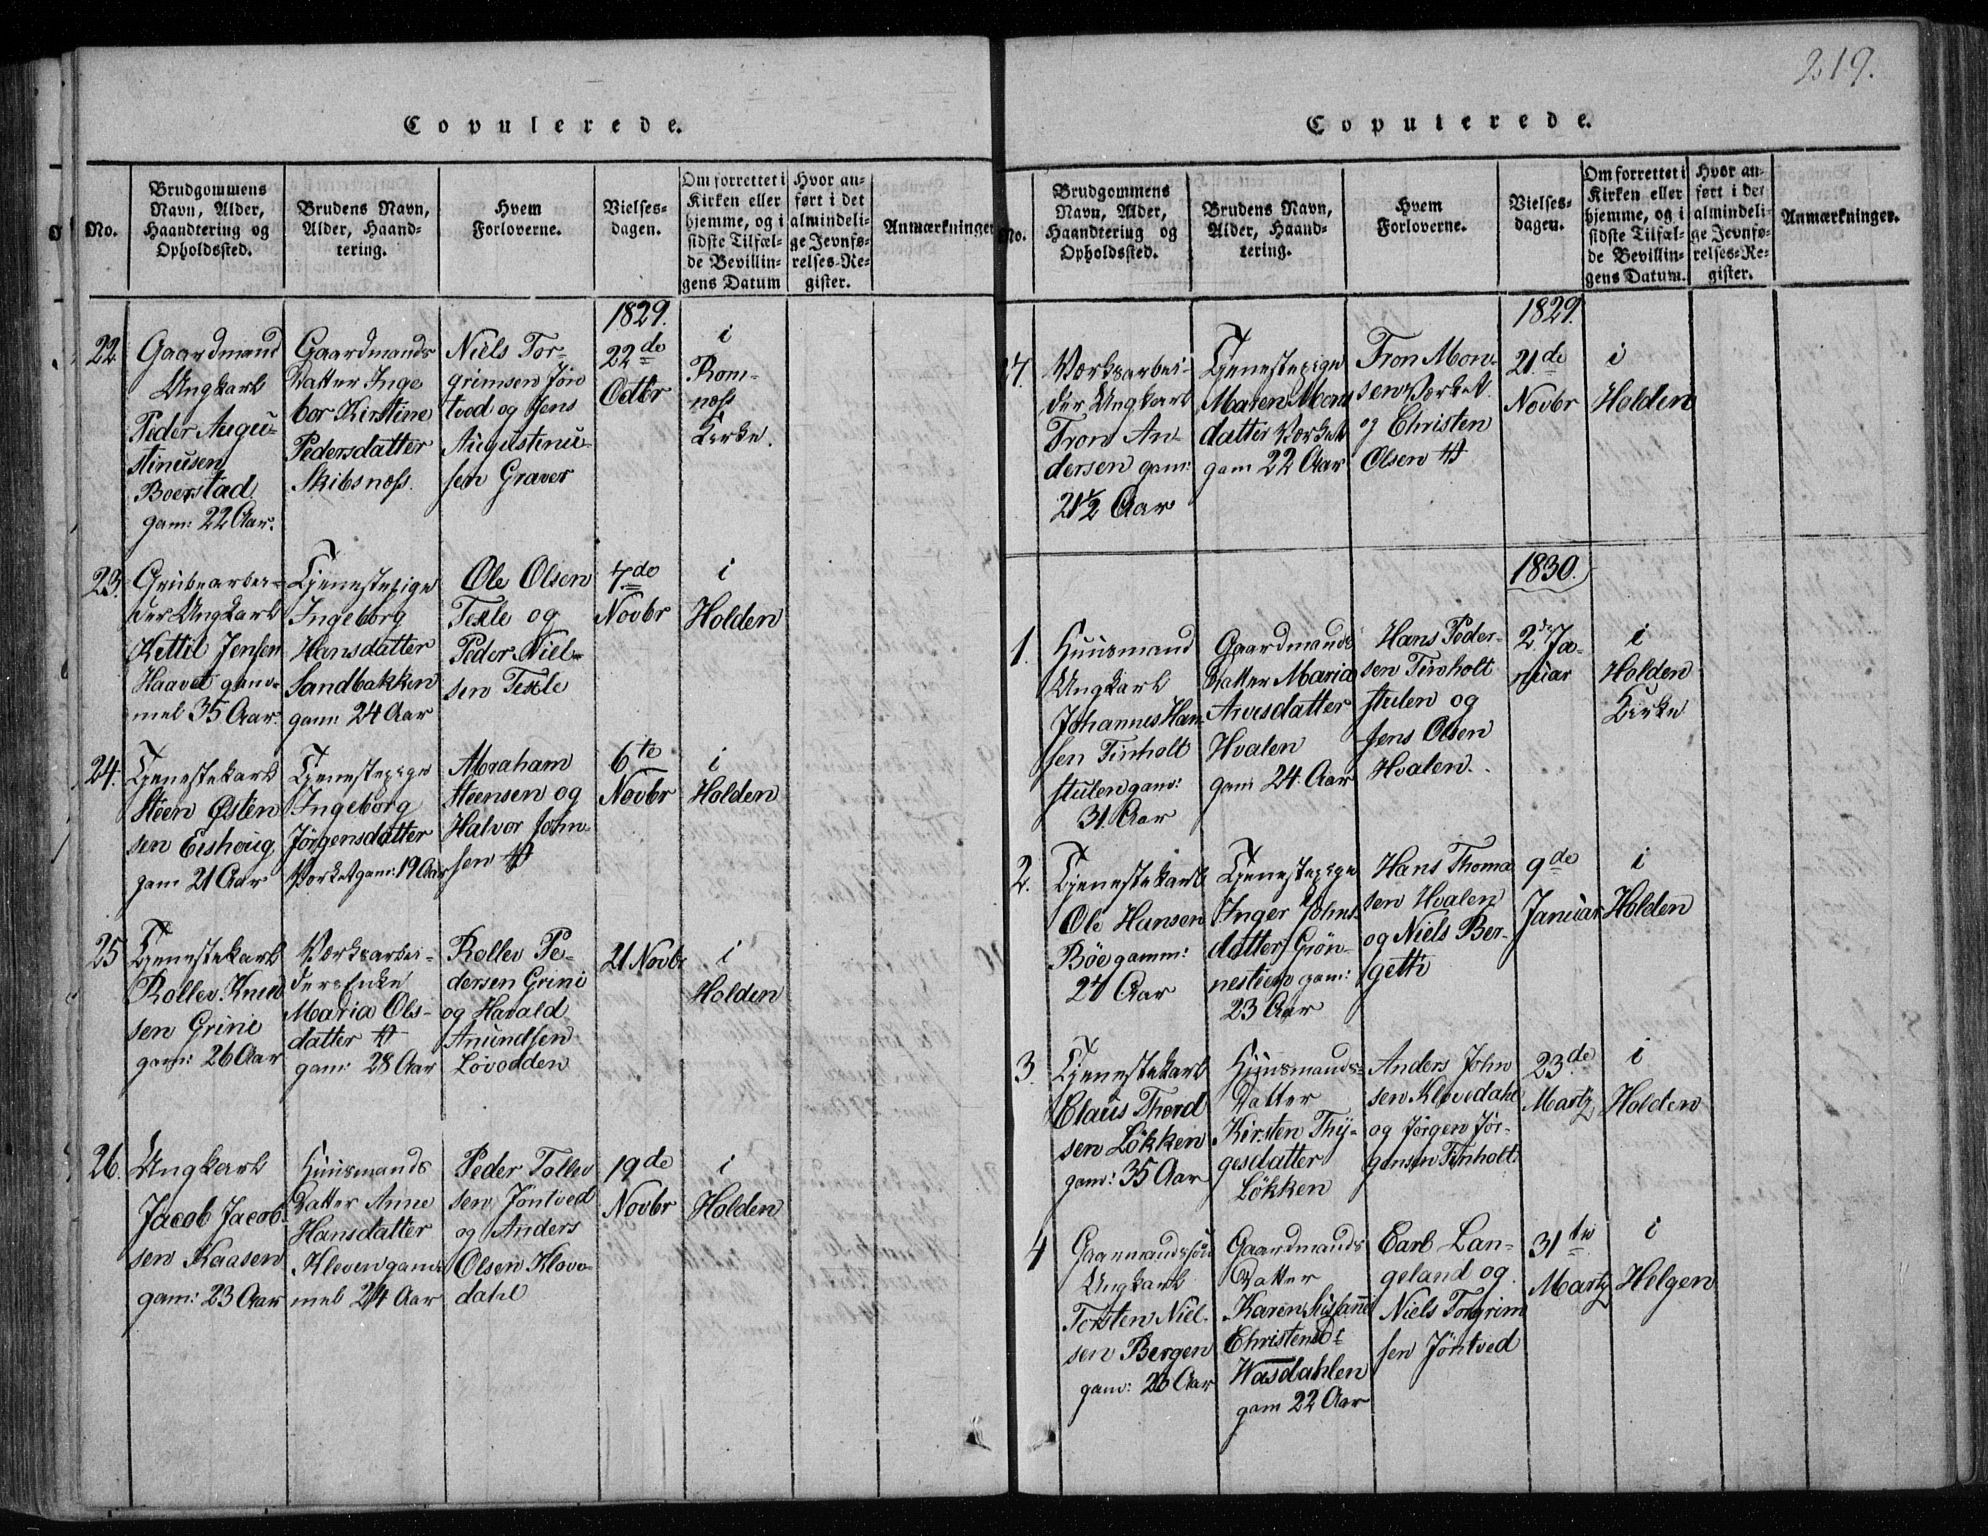 219.
Copulerede.
No.
Brudgommens
Navn, Alder,
Haandtering og
Opholdssted.
Brudens Navn,
Alder, Haand-
tering.
Hvem
Forloverne.
Vielses-
dagen.
Om forrettet i
Kirken eller
hjemme, og i
sidste Tilfæl-
de Bevillin-
gens Datum
Hvor an-
ført i det
almindeli-
ge Jevnfø-
relses-Re-
gister.
Anmærkninger
1829.
22
Gaardmand
Ungkarl
Peder Augu-
stinusen
Boerstad
gam: 22 Aar.
Gaardmands
Datter Inge
bor Kirstine
Pedersdatter
Skibsnæss.
Niels Tor-
grimsen Jön
tved og Jens
Augustinu-
sen Graver
22de
Octbr
i
Rom-
næss
Kirke.
23.
Grubearbei-
der Ungkarl
Kettil Jensen
Haavet gam-
mel 35 Aar.
Tjenestepige
Ingeborg
Hansdatter
Sandbakken
gam: 24 Aar
Ole Olsen
Texle og
Peder Niel-
sen Texle
7de
Novbr
i
Holden
24.
Tjenestekarl
Steen Østen
sen Eishoug
gam 21 Aar
Tjenestepige
Ingeborg
Jörgensdatter
Værket gam: 19 Aar
Abraham
Steensen og
Halvor John-
sen
6te
Novbr
i
Holden
25
Tjenestekarl
Rollev Knud
sen Grini
gam: 26 Aar
Værksarbei-
ders Enke
Maria Ols-
datter
gam: 28 Aar
Rollev Pe-
dersen Grini
og Harald
Anundsen
Lövodden
21 Novbr
i
Holden
26.
Ungkarl
Jacob Jacob-
sen Kaasen
gam: 23 Aar
Huusmands
Datter Anne
Hansdatter
Kleven gam-
mel 24 Aar
Peder Tollev
sen Jöntved
og Anders
Olsen Klove-
dahl
19de
Novbr
i
Holden
Copulerede.
No.
Brudgommens
Navn, Alder,
Haandtering og
Opholdssted.
Brudens Navn,
Alder, Haand-
tering.
Hvem
Forloverne.
Vielses-
dagen.
Om forrettet i
Kirken eller
hjemme, og i
sidste Tilfæl-
de Bevillin-
gens Datum.
Hvor an-
ført i det
almindeli-
ge Jevnfø-
relses-Re-
gister.
Anmærkninger.
1829.
27.
Værksarbei-
der Ungkarl
Tron An-
dersen gam:
21½ Aar
Tjenestepige
Maren Mons
datter Værket
gam 22 Aar
Tron Mon-
sen Værket
og Christen
Olsen
21de
Novbr
i
Holden
1830.
1.
Huusmand
Ungkarl
Johannes Han-
sen Tinholt
stulen gam:
31. Aar
Gaardmands
Datter Maria
Arvesdatter
Hvalen
gam 24. Aar
Hans Peder-
sen Tinholt
stulen og
Jens Olsen
Hvalen.
2de Ja-
nuar
i
Holden
Kirke
2.
Tjenestekarl
Ole Hansen
Böe gamm:
24 Aar
Tjenestepige
Inger Johns
datter Grön-
nestien gam:
23 Aar
Hans Thoma
sen Hvalen
og Niels Ber-
getti
9de
Januar
i
Holden
3.
Tjenestekarl
Claus Thord
sen Lökken
gam: 35 Aar
Huusmands-
Datter
Kirsten Thy-
gesdatter
Lökken
Anders John
sen Klovedahl
og Jörgen Jör-
gensen Tinholt.
23de
Martz
i
Holden
4
Gaarmandssön
Ungkarl
Torsten Niel-
sen Bergen
gam: 26 Aar
Gaardmands
Datter
Karen Susanne
Christensdt
Wasdahlen
gam 22 Aar
Carl Lan-
geland og
Niels Torgrim
sen Jöntved
31te
Martz
i
Helgen